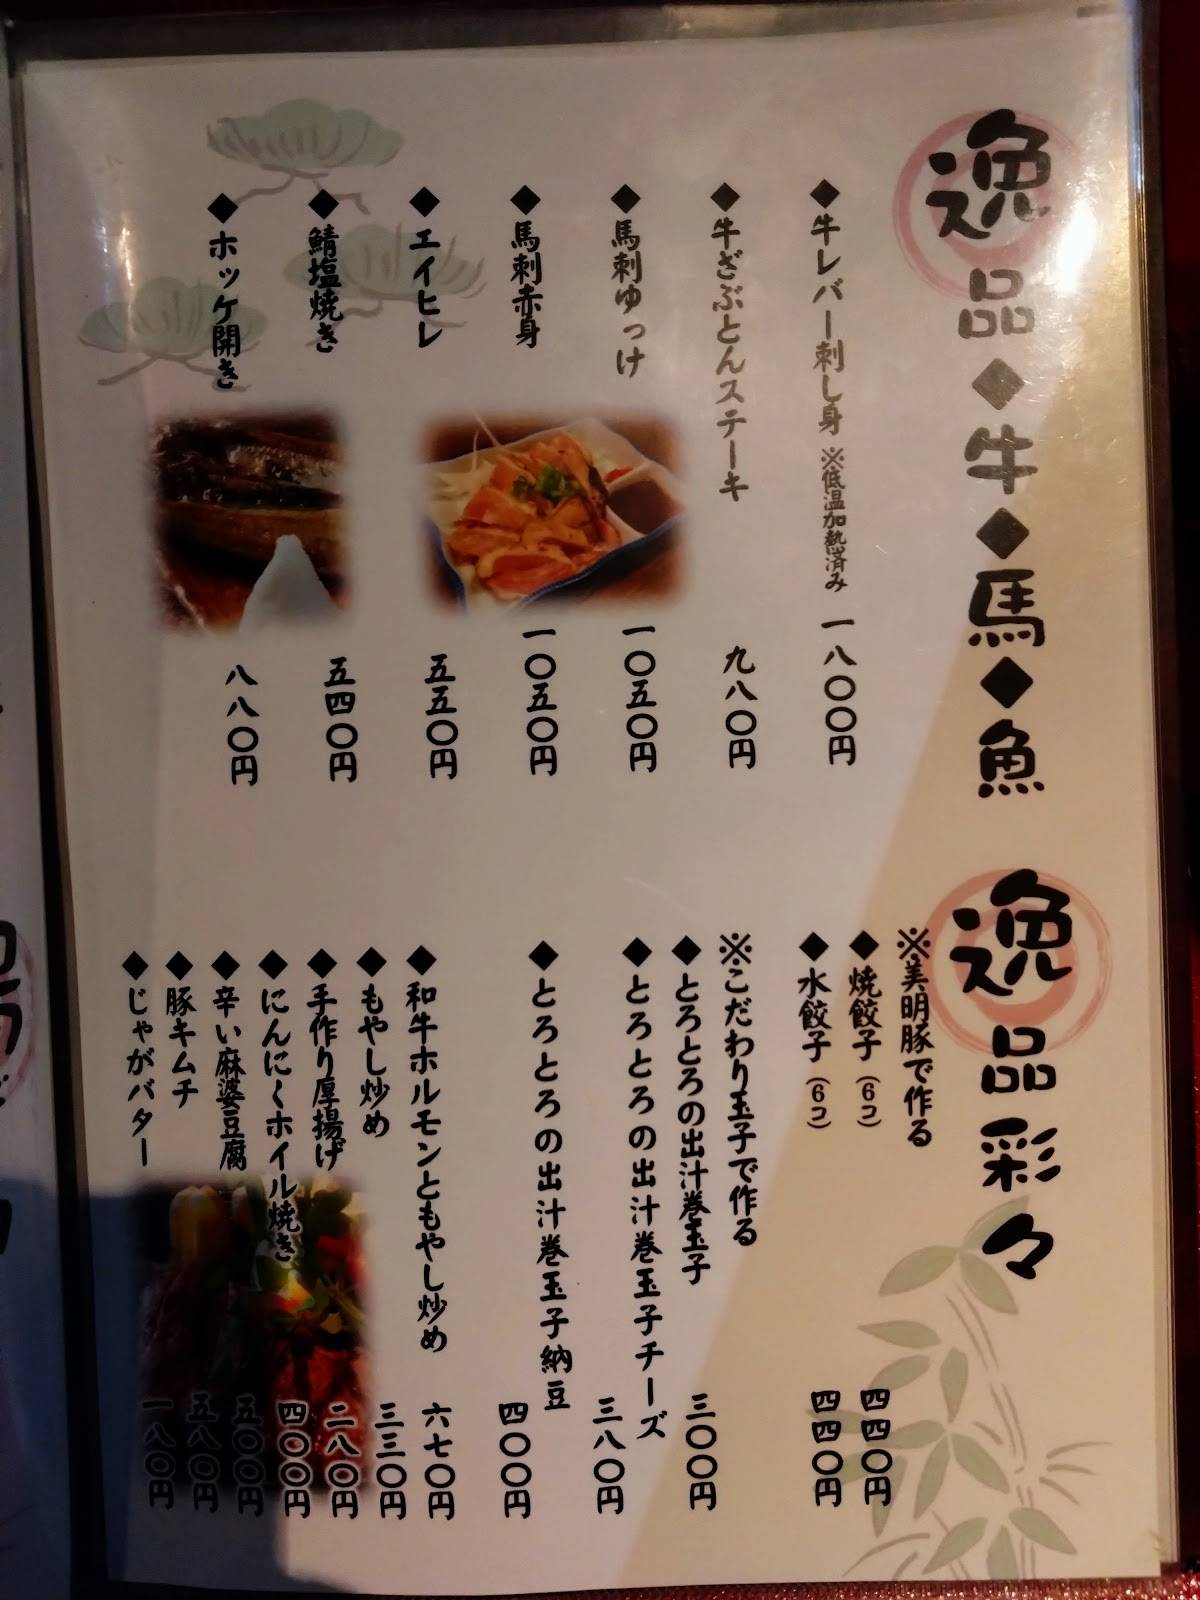 逸品◆牛◆馬◆魚
◆牛レバー刺し身 ※低温加熱済み 一八〇〇円
◆牛ざぶとんステーキ 九八〇円
◆馬刺ゆっけ 一〇五〇円
◆馬刺赤身 一〇五〇円
◆エイヒレ 五五〇円
◆鯖塩焼き 五四〇円
◆ホッケ開き 八八〇円
逸品彩々
※美明豚で作る
◆焼餃子（6コ） 四四〇円
◆水餃子（6コ） 四四〇円
※こだわり玉子で作る
◆とろとろの出汁巻玉子 三〇〇円
◆とろとろの出汁巻玉子チーズ 三八〇円
◆とろとろの出汁巻玉子納豆 四〇〇円
◆和牛ホルモンともやし炒め 六七〇円
◆もやし炒め 三三〇円
◆手作り厚揚げ 二八〇円
◆にんにくホイル焼き 四〇〇円
◆辛い麻婆豆腐 五〇〇円
◆豚キムチ 五八〇円
◆じゃがバター 一八〇円